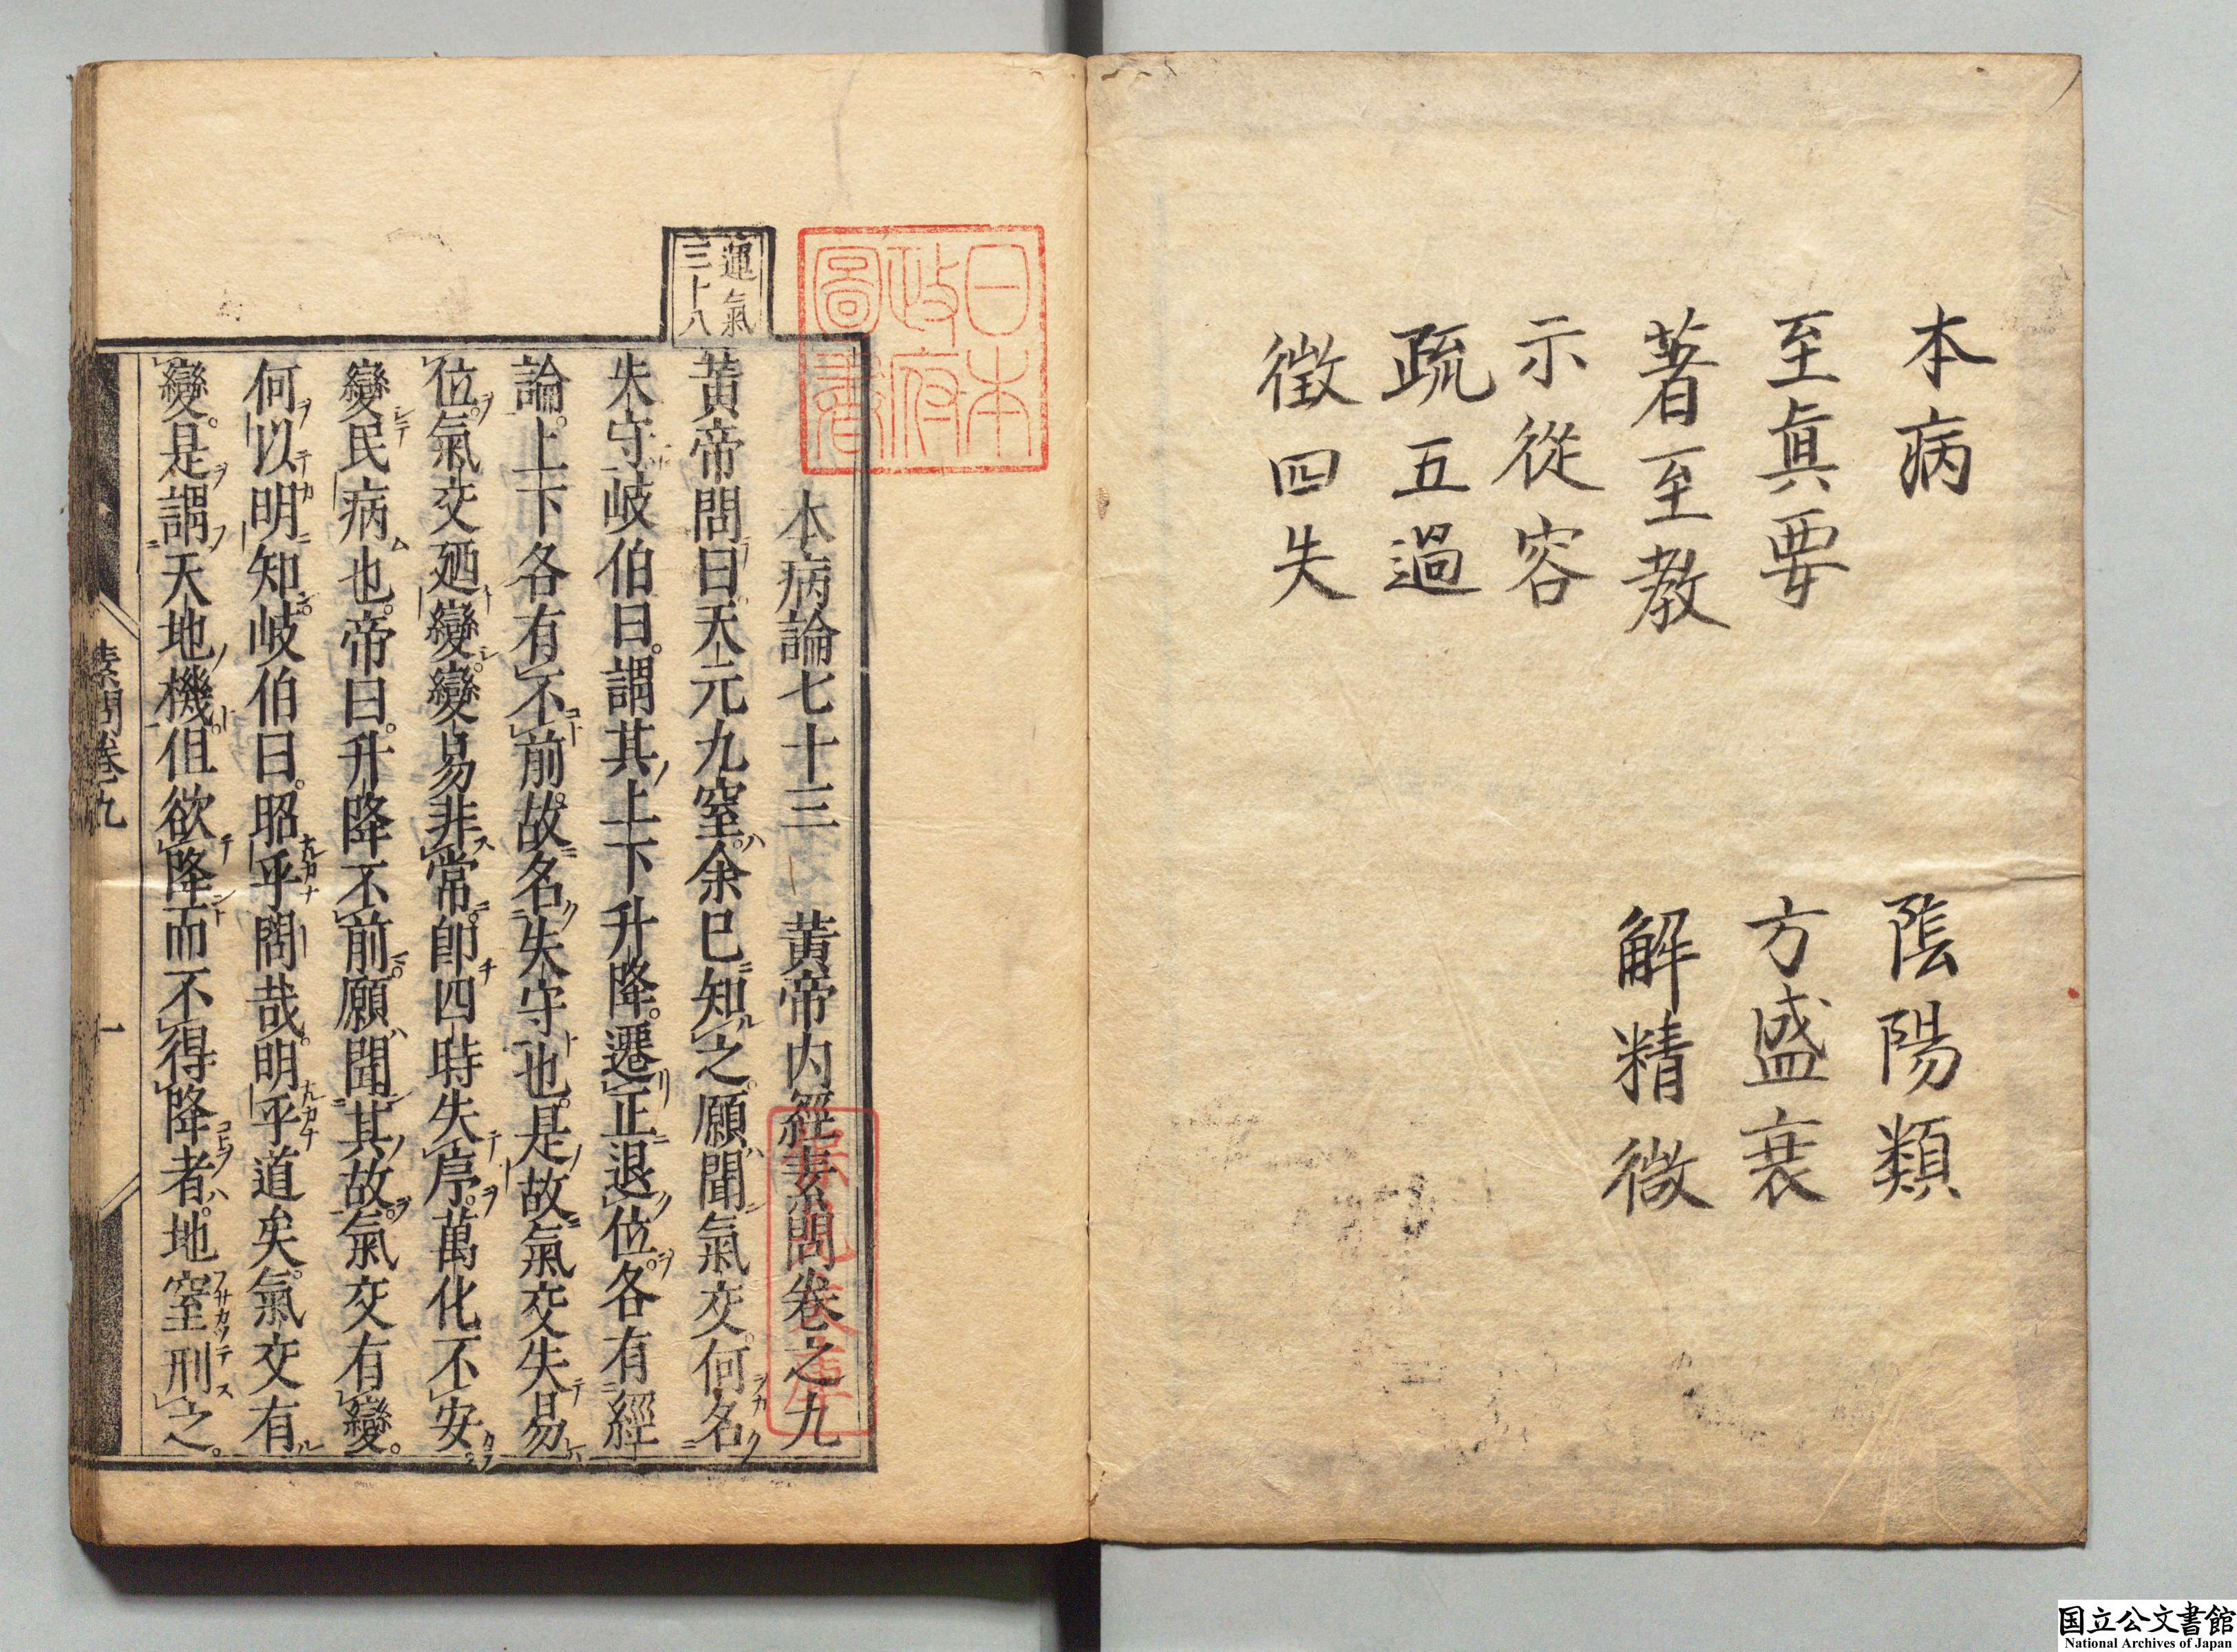 本病
至眞要
著至教
示從容
疏五過
徴四失
陰陽類
方盛衰
解精微
日本
政府
圖書
運氣
三十八
本病論七十三 黃帝內經素問卷之九
黃帝問曰天元九窒余已知之願聞氣交何名
失守岐伯曰謂其上下升降遷正退位各有經
論上下各有不前故名失守也是故氣交失易
位氣交廼變變易非常卽四時失序萬化不安
變民病也帝曰升降不前願聞其故氣交有變
何以明知岐伯曰昭乎問哉明乎道矣氣交有
變是謂天地機但欲降而不得降者地窒刑之
素問卷九
一
国立公文書館
National Archives of Japan